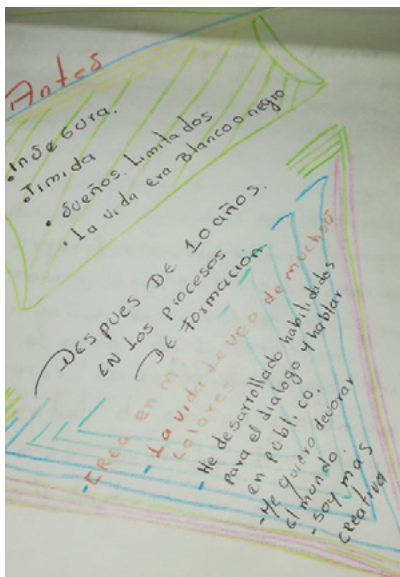 Antes
• Insegura.
• Timida
• sueños. Limitados
• La vida era Blanco o negro
Despues De 10 años.
EN Los procesos
DE Formación
- Creo en mi.
- La vida la veo de muchos
colores
- He desarrollado habilidades
para el dialogo y hablar
en publico.
- Me quiero devorar
el mundo.
- soy mas
creativa